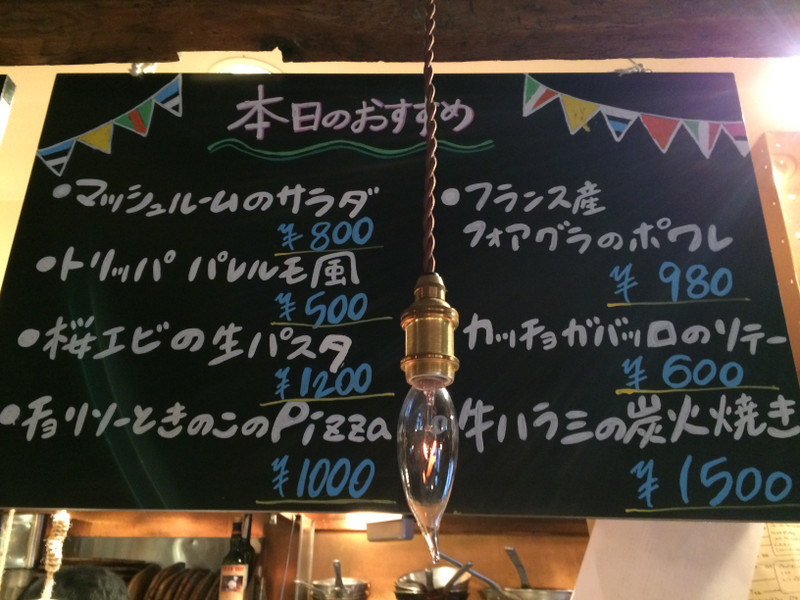 本日のおすすめ
•マッシュルームのサラダ
¥800
•トリッパ パレルモ風
¥500
•桜エビの生パスタ
¥1200
•チョリソーときのこのPizza
¥1000
•フランス産
フォアグラのポワレ
¥980
カッチョガバッロのソテー
¥600
牛ハラミの炭火焼き
¥1500